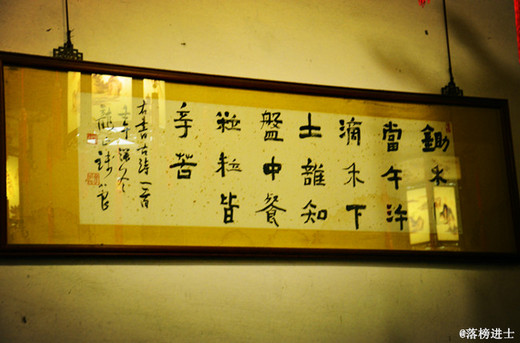 鋤禾
當午汗
滴禾下
土誰知
盤中餐
粒粒皆
辛苦
右書古詩一首
@落榜进士